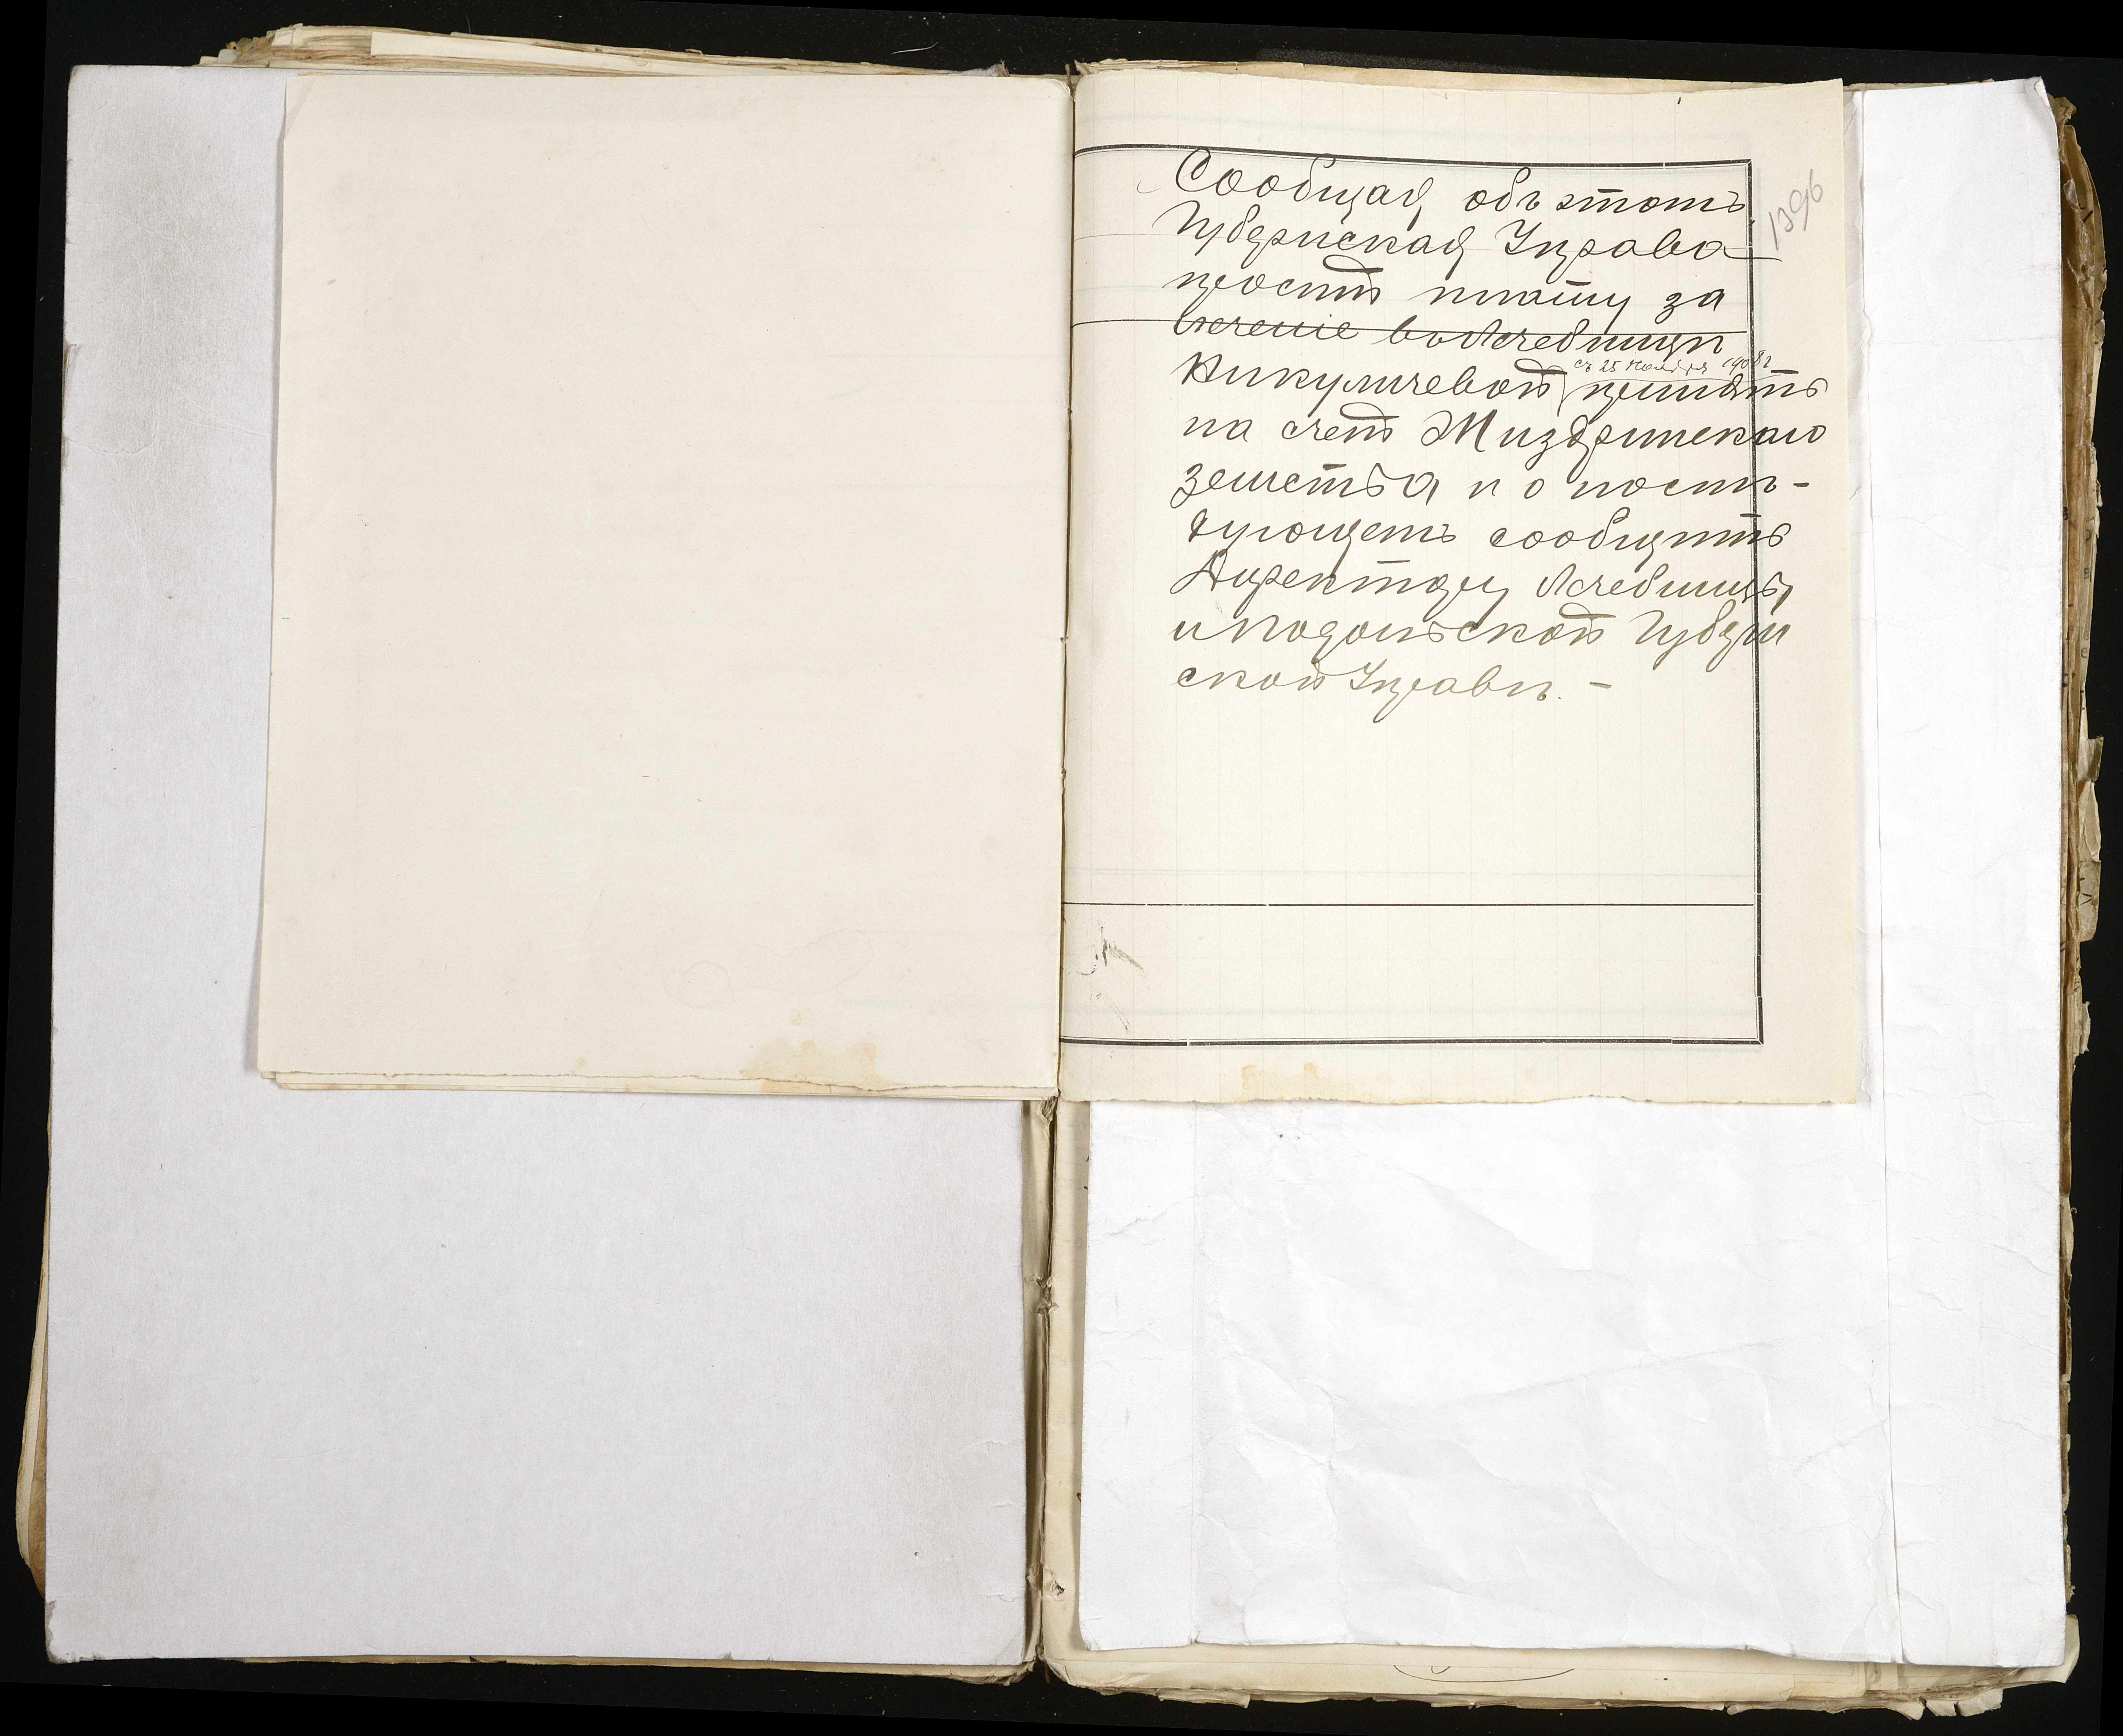 Сообщая объ этомъ,
Губернская Управа
просит плату за
леченіе въ Лечебницѣ
Никуличевой принять
съ 25 Ноября 1908 г.
на счет Миздринскаго
земства и о послѣ-
дующемъ сообщить
Директору Лечебницы
и Подольской Губерн
ской Управѣ. –
1396